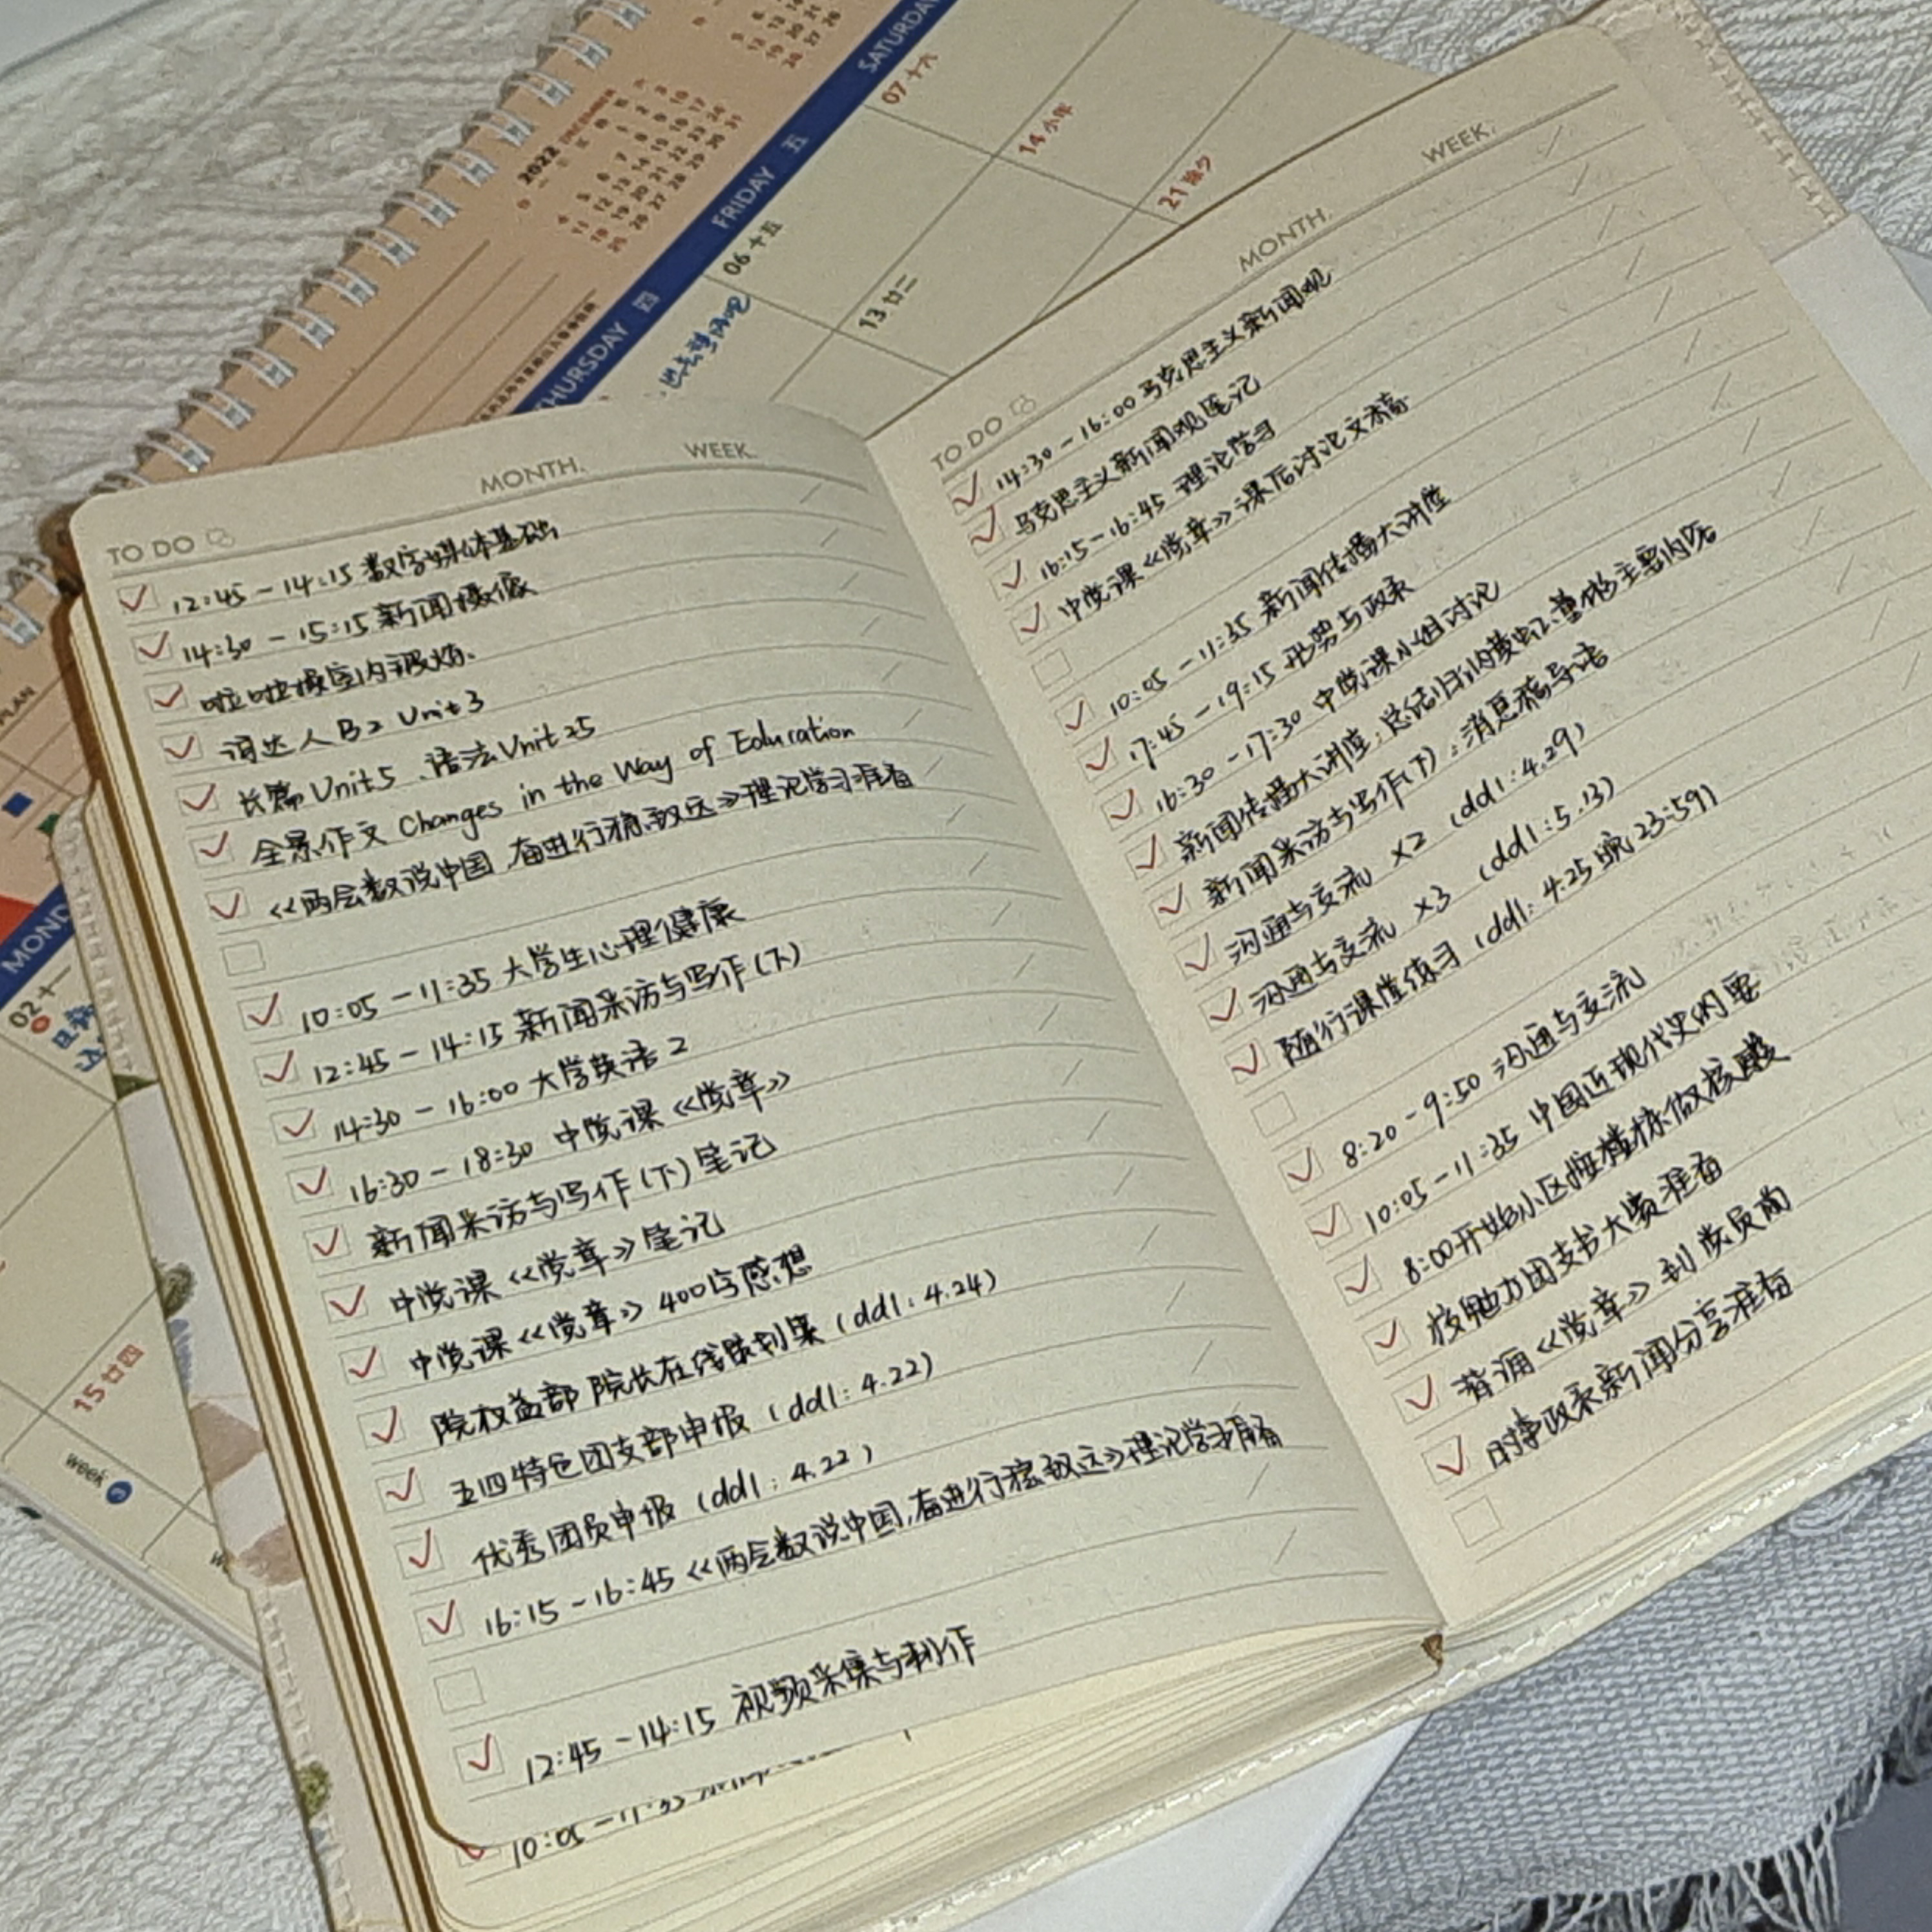 2022 DECEMBER
THURSDAY 四
FRIDAY 五
SATURDAY
06 十五
07 十六
13 廿二
14 小年
21 除夕
PLAN
MOND
02 十一
15 廿四
week 3
MONTH. WEEK.
TO DO
12:45-14:15 数字媒体基础
14:30-15:15 新闻摄像
啦啦操室内
词达人B2 Unit3
长篇Unit5、语法Unit25
全景作文 Changes in the Way of Education
《两会数说中国,奋进行稳致远》理论学习准备
10:05-11:35 大学生心理健康
12:45-14:15 新闻采访与写作(下)
14:30-16:00 大学英语2
16:30-18:30 中党课《党章》
新闻采访与写作(下)笔记
中党课《党章》笔记
中党课《党章》400字感想
院权益部 院长在线策划案(ddl:4.24)
五四特色团支部申报(ddl:4.22)
优秀团员申报(ddl:4.22)
16:15-16:45《两会数说中国,奋进行稳致远》理论学习准备
12:45-14:15 视频采集与制作
10:05-11:35
MONTH. WEEK.
TO DO
14:30-16:00 马克思主义新闻观
马克思主义新闻观笔记
16:15-16:45 理论学习
中党课《党章》课后讨论文稿
10:05-11:35 新闻传播大讲堂
17:45-19:15 形势与政策
16:30-17:30 中党课小组讨论
新闻传播大讲堂:总结归纳 主要内容
新闻采访与写作(下):消息稿导语
沟通与交流 ×2(ddl:4.29)
沟通与交流 ×3(ddl:5.13)
随行课堂练习(ddl:4.25晚23:59)
8:20-9:50 沟通与交流
10:05-11:35 中国近现代史纲要
8:00开始小区按楼栋做核酸
接 力团支书大赛准备
背诵《党章》到党员前
时事政策新闻分享准备